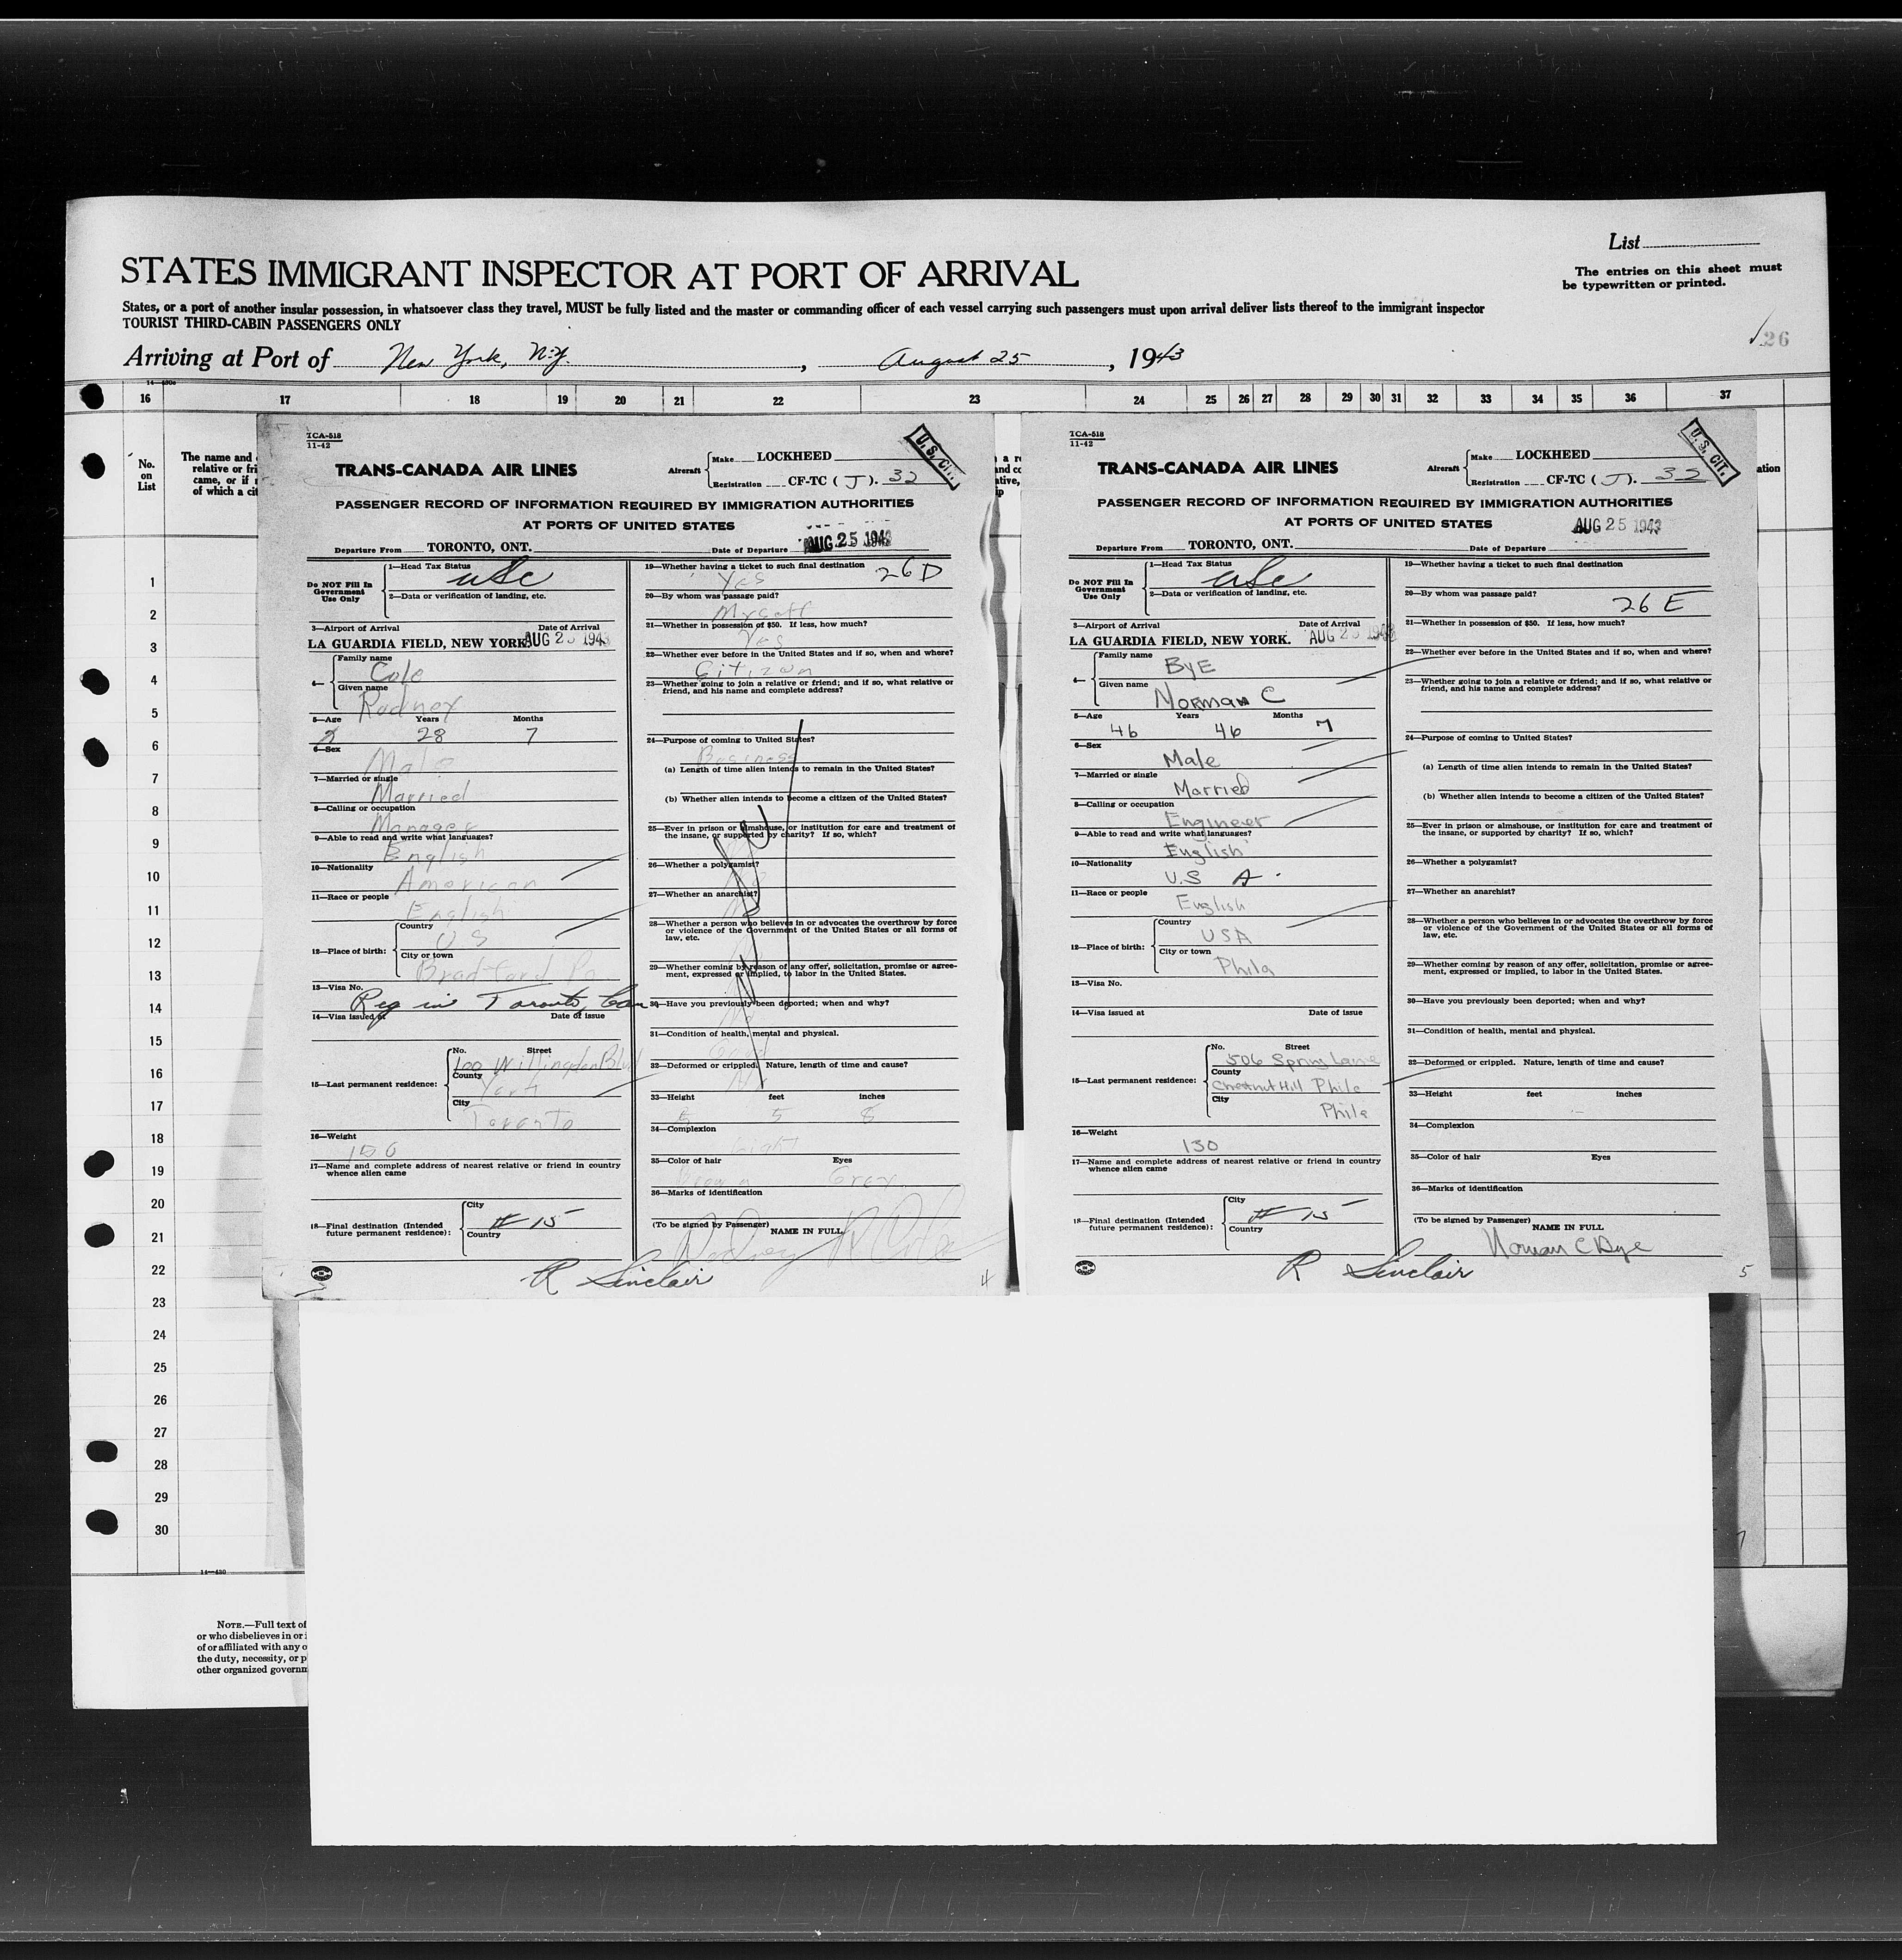 List
The entries on this sheet must
be typewritten or printed.
STATES IMMIGRANT INSPECTOR AT PORT OF ARRIVAL
States, or a port of another insular possession, in whatsoever class they travel, MUST be fully listed and the master or commanding officer of each vessel carrying such passengers must upon arrival deliver lists thereof to the immigrant inspector
TOURIST THIRD-CABIN PASSENGERS ONLY
26
Arriving at Port of New York, N.Y., August 25, 1943
16 17 18 19 20 21 22 23 24 25 26 27 28 29 30 31 32 33 34 35 36 37
No.
on
List
The name and
relative or fri
came, or if
of which a cit
1
2
3
4
5
6
7
8
9
10
11
12
13
14
15
16
17
18
19
20
21
22
23
24
25
26
27
28
29
30
TCA-518
11-42
TRANS-CANADA AIR LINES
Aircraft
Make LOCKHEED
Registration CF-TC ( J ). 32
U.S. CIT.
PASSENGER RECORD OF INFORMATION REQUIRED BY IMMIGRATION AUTHORITIES
AT PORTS OF UNITED STATES
Departure From TORONTO, ONT. Date of Departure AUG 25 1943
Do NOT Fill In
Government
Use Only
1—Head Tax Status
USC
2—Data or verification of landing, etc.
3—Airport of Arrival Date of Arrival
LA GUARDIA FIELD, NEW YORK. AUG 25 1943
4— Family name
Cole
Given name
Rodney
5—Age Years Months
28 7
6—Sex
Male
7—Married or single
Married
8—Calling or occupation
Manager
9—Able to read and write what languages?
English
10—Nationality
American
11—Race or people
English
12—Place of birth: Country
U S
City or town
Bradford Pa.
13—Visa No.
Reg in Toronto, Can
14—Visa issued at Date of issue
15—Last permanent residence:
No. Street
100 Willingdon Blvd
County
York
City
Toronto
16—Weight
150
17—Name and complete address of nearest relative or friend in country
whence alien came
18—Final destination (Intended
future permanent residence):
City
# 15
Country
R Sinclair
19—Whether having a ticket to such final destination
Yes 26 D
20—By whom was passage paid?
Myself
21—Whether in possession of $50. If less, how much?
Yes
22—Whether ever before in the United States and if so, when and where?
Citizen
23—Whether going to join a relative or friend; and if so, what relative or
friend, and his name and complete address?
24—Purpose of coming to United States?
Business
(a) Length of time alien intends to remain in the United States?
(b) Whether alien intends to become a citizen of the United States?
25—Ever in prison or almshouse, or institution for care and treatment of
the insane, or supported by charity? If so, which?
26—Whether a polygamist?
27—Whether an anarchist?
28—Whether a person who believes in or advocates the overthrow by force
or violence of the Government of the United States or all forms of
law, etc.
29—Whether coming by reason of any offer, solicitation, promise or agree-
ment, expressed or implied, to labor in the United States.
30—Have you previously been deported; when and why?
No
31—Condition of health, mental and physical.
Good
32—Deformed or crippled. Nature, length of time and cause?
No
33—Height feet inches
5 8
34—Complexion
Light
35—Color of hair Eyes
Brown Grey
36—Marks of identification
(To be signed by Passenger)
NAME IN FULL
Rodney R Cole
4
TCA-518
11-42
TRANS-CANADA AIR LINES
Aircraft
Make LOCKHEED
Registration CF-TC ( J ). 32
U.S. CIT.
PASSENGER RECORD OF INFORMATION REQUIRED BY IMMIGRATION AUTHORITIES
AT PORTS OF UNITED STATES
AUG 25 1943
Departure From TORONTO, ONT. Date of Departure
Do NOT Fill In
Government
Use Only
1—Head Tax Status
USC
2—Data or verification of landing, etc.
3—Airport of Arrival Date of Arrival
LA GUARDIA FIELD, NEW YORK. AUG 25 1943
4— Family name
ByE
Given name
Norman C
5—Age Years Months
46 46 7
6—Sex
Male
7—Married or single
Married
8—Calling or occupation
Engineer
9—Able to read and write what languages?
English
10—Nationality
U.S A.
11—Race or people
English
12—Place of birth: Country
USA
City or town
Phila
13—Visa No.
14—Visa issued at Date of issue
15—Last permanent residence:
No. Street
506 Spring Lane
County
Chestnut Hill Phila
City
Phila
16—Weight
130
17—Name and complete address of nearest relative or friend in country
whence alien came
18—Final destination (Intended
future permanent residence):
City
# 15
Country
R Sinclair
19—Whether having a ticket to such final destination
20—By whom was passage paid?
26 E
21—Whether in possession of $50. If less, how much?
22—Whether ever before in the United States and if so, when and where?
23—Whether going to join a relative or friend; and if so, what relative or
friend, and his name and complete address?
24—Purpose of coming to United States?
(a) Length of time alien intends to remain in the United States?
(b) Whether alien intends to become a citizen of the United States?
25—Ever in prison or almshouse, or institution for care and treatment of
the insane, or supported by charity? If so, which?
26—Whether a polygamist?
27—Whether an anarchist?
28—Whether a person who believes in or advocates the overthrow by force
or violence of the Government of the United States or all forms of
law, etc.
29—Whether coming by reason of any offer, solicitation, promise or agree-
ment, expressed or implied, to labor in the United States.
30—Have you previously been deported; when and why?
31—Condition of health, mental and physical.
32—Deformed or crippled. Nature, length of time and cause?
33—Height feet inches
34—Complexion
35—Color of hair Eyes
36—Marks of identification
(To be signed by Passenger)
NAME IN FULL
Norman C Bye
5
14—430
NOTE.—Full text of
or who disbelieves in or
of or affiliated with any o
the duty, necessity, or p
other organized governm